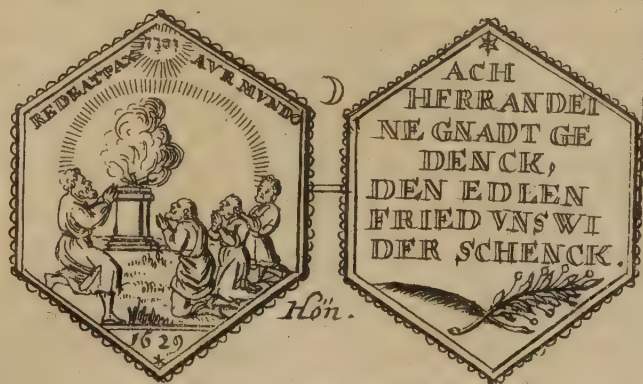 REDEAT PAX AVR MVNDO
1629
Hön.
ACH
HERR AN DEI
NE GNADT GE
DENCK,
DEN EDLEN
FRIED VNS WI
DER SCHENCK.